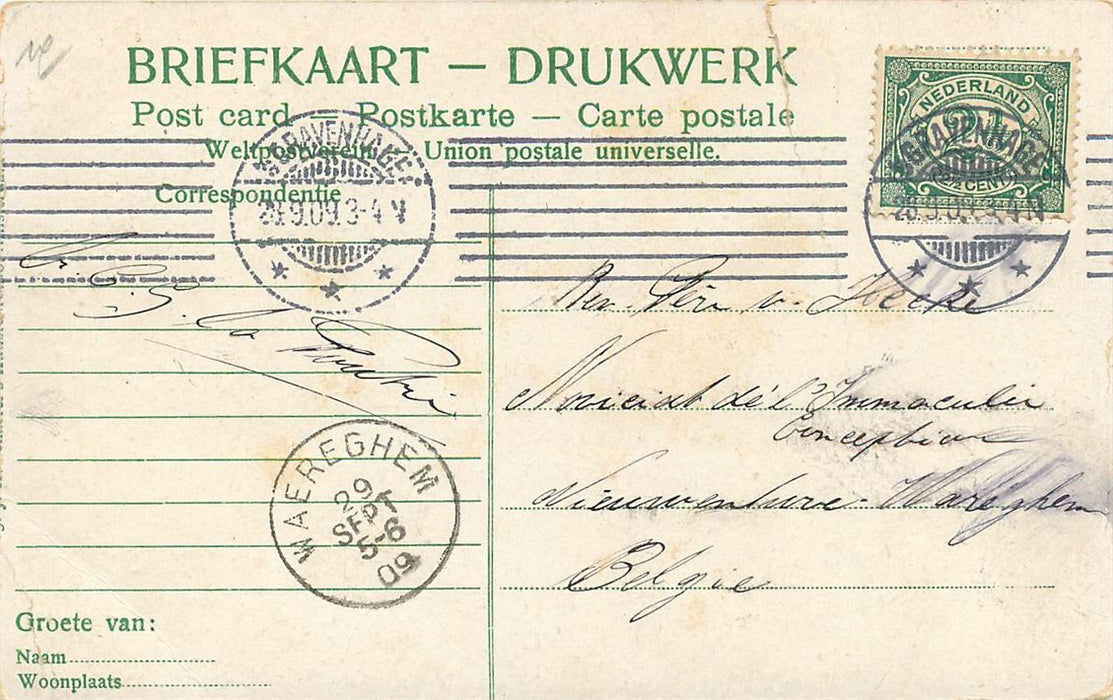 BRIEFKAART — DRUKWERK
Post card — Postkarte — Carte postale
Weltpostverein. Union postale universelle.
Correspondentie
NEDERLAND
2½
CENT
'S-GRAVENHAGE.
29.9.09.3-4 V
'S-GRAVENHAGE.
29.9.09.3-4 V
v. Heeke
Noviciat de l'Immaculée
Conception
Nieuwenhove-Wareghem
Belgie
WAEREGHEM
29
SEPT
5-6
09
Groete van:
Naam
Woonplaats